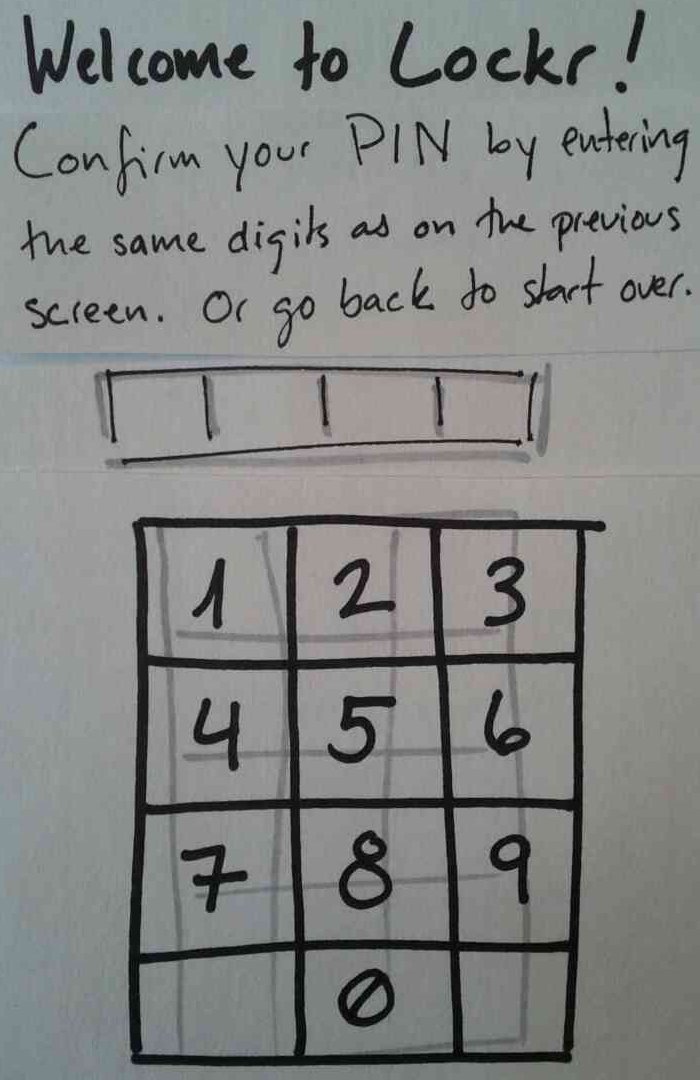 Welcome to Lockr!
Confirm your PIN by entering
the same digits as on the previous
screen. Or go back to start over.
1 2 3
4 5 6
7 8 9
0